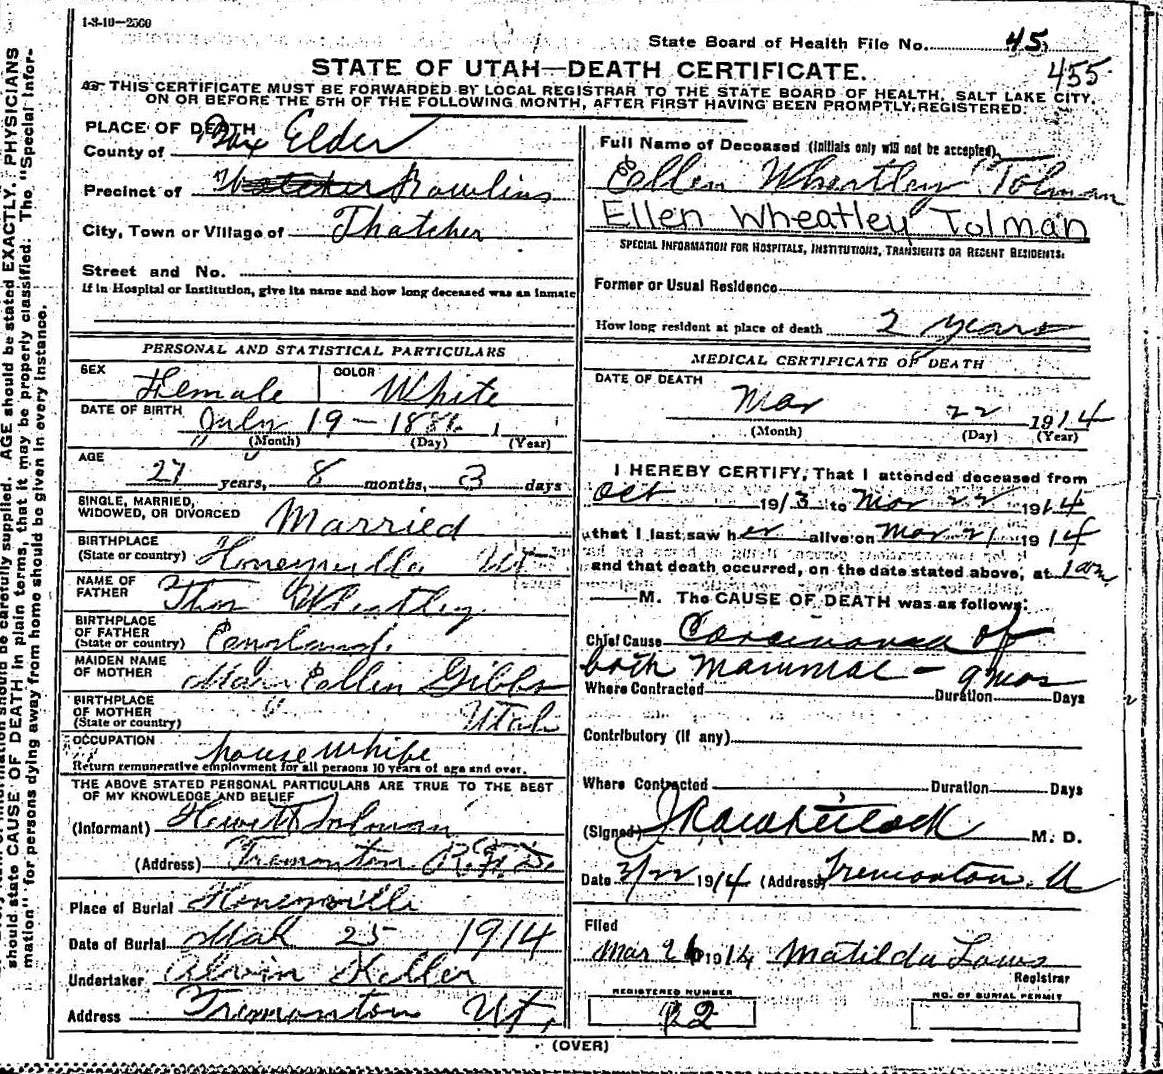 1-3-10—2500
State Board of Health File No. 45
455
STATE OF UTAH—DEATH CERTIFICATE.
THIS CERTIFICATE MUST BE FORWARDED BY LOCAL REGISTRAR TO THE STATE BOARD OF HEALTH, SALT LAKE CITY,
ON OR BEFORE THE 5TH OF THE FOLLOWING MONTH, AFTER FIRST HAVING BEEN PROMPTLY REGISTERED.
PLACE OF DEATH
County of Box Elder
Precinct of Thatcher Rawlins
City, Town or Village of Thatcher
Street and No.
If in Hospital or Institution, give its name and how long deceased was an inmate
PERSONAL AND STATISTICAL PARTICULARS
SEX Female COLOR White
DATE OF BIRTH July 19 – 1886
(Month) (Day) (Year)
AGE
27 years, 8 months, 3 days
SINGLE, MARRIED,
WIDOWED, OR DIVORCED Married
BIRTHPLACE
(State or country) Honeyville Ut
NAME OF
FATHER Thos Wheatley
BIRTHPLACE
OF FATHER
(State or country) England.
MAIDEN NAME
OF MOTHER Mary Ellen Gibbs
BIRTHPLACE
OF MOTHER
(State or country) Utah
OCCUPATION house whife
Return remunerative employment for all persons 10 years of age and over.
THE ABOVE STATED PERSONAL PARTICULARS ARE TRUE TO THE BEST
OF MY KNOWLEDGE AND BELIEF
(Informant) Hewitt Tolman
(Address) Tremonton R.F.D.
Place of Burial Honeyville
Date of Burial Mar 25 1914
Undertaker Alvin Keller
Address Tremonton Ut.
Full Name of Deceased (Initials only will not be accepted).
Ellen Wheatley Tolman
Ellen Wheatley Tolman
SPECIAL INFORMATION FOR HOSPITALS, INSTITUTIONS, TRANSIENTS OR RECENT RESIDENTS:
Former or Usual Residence
How long resident at place of death 2 years
MEDICAL CERTIFICATE OF DEATH
DATE OF DEATH
Mar 22 1914
(Month) (Day) (Year)
I HEREBY CERTIFY, That I attended deceased from
Oct 1913 to Mar 22 1914
that I last saw her alive on Mar 21 1914
and that death occurred, on the date stated above, at 1 am
M. The CAUSE OF DEATH was as follows:
Chief Cause Carcinomea of
both mammae – 9 mos
Where Contracted Duration Days
Contributory (if any)
Where Contracted Duration Days
(Signed) M. D.
Date 3/22 1914 (Address) Tremonton. U
Filed
Mar 26 1914 Matilda Laws
Registrar
REGISTERED NUMBER
12
NO. OF BURIAL PERMIT
(OVER)
should be carefully supplied. AGE should be stated EXACTLY. PHYSICIANS
should state CAUSE OF DEATH in plain terms, that it may be properly classified. The "Special Infor-
mation" for persons dying away from home should be given in every instance.